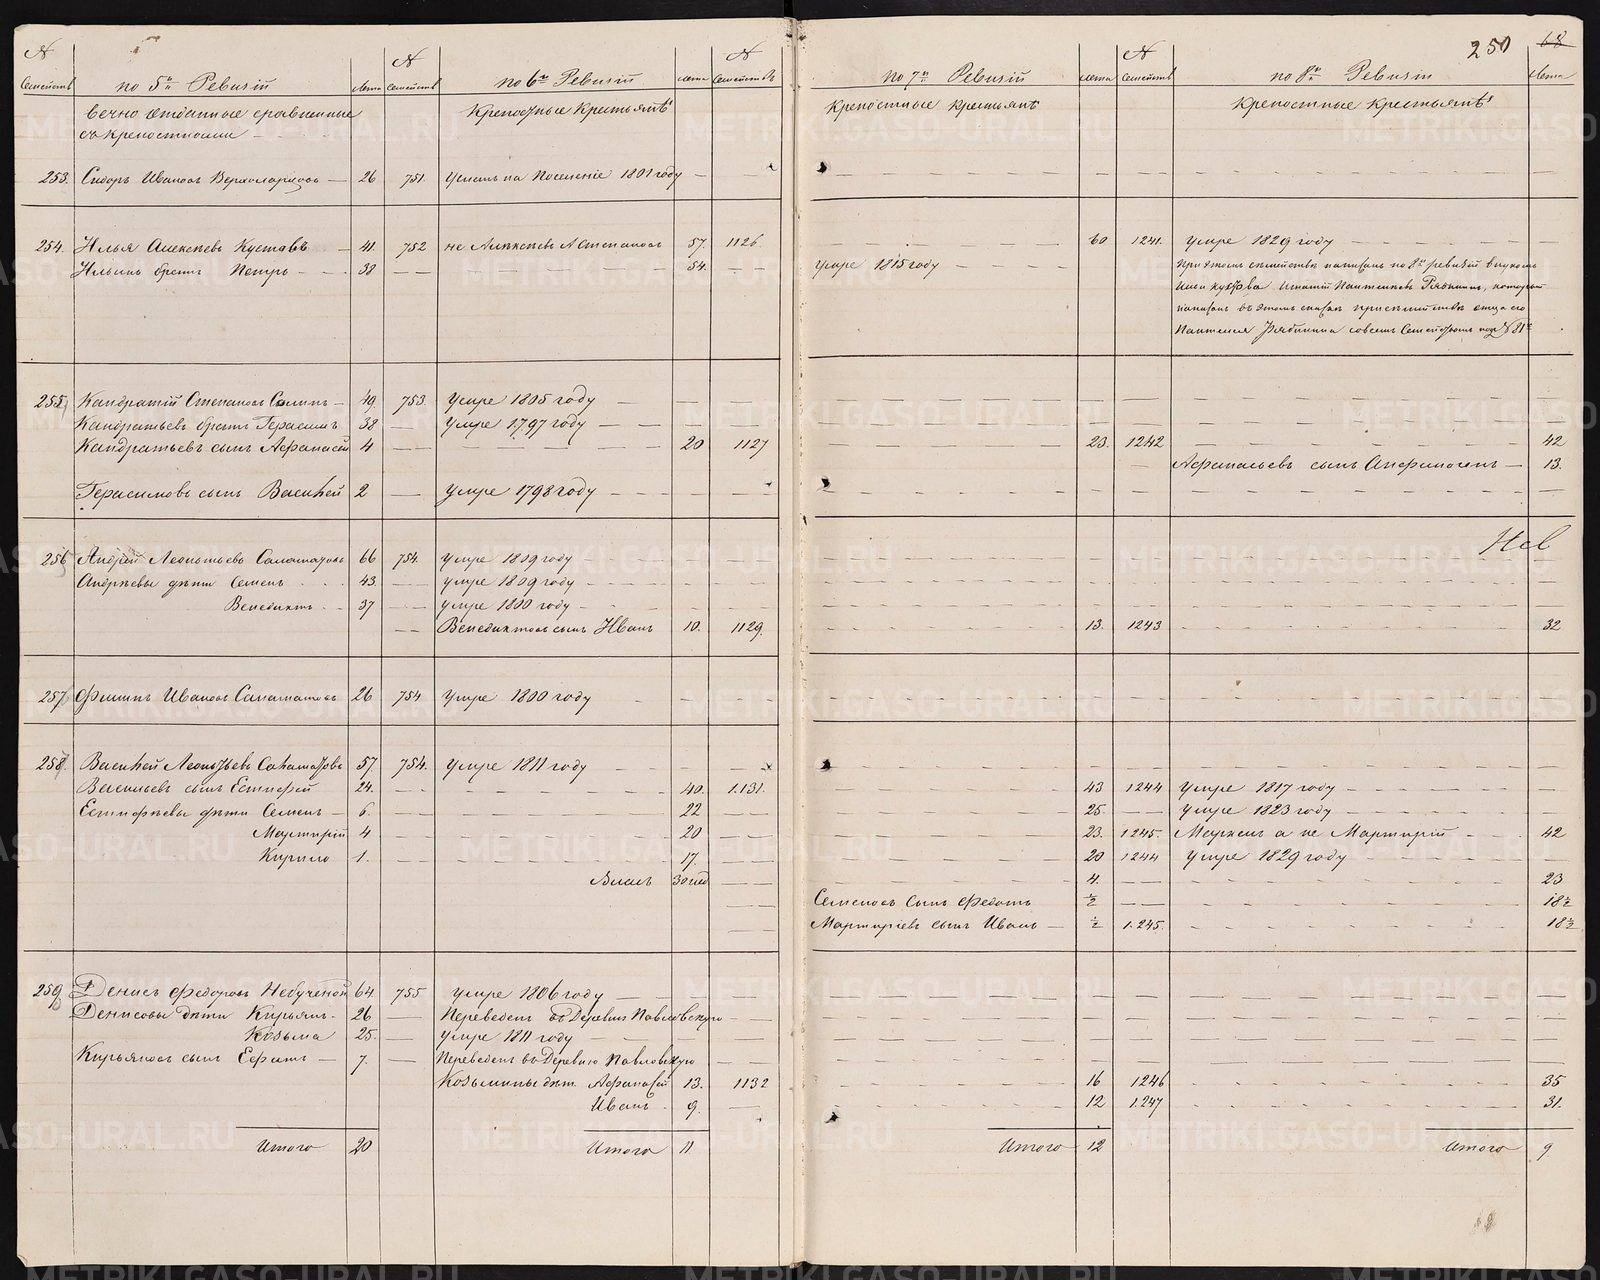 250 68
N N N
Семейств по 5й Ревизіи лета Семейств по 6й Ревизіи лета Семейств по 7й Ревизіи лета Семейств по 8й Ревизіи лета
вечно отданные сравненные Крепостные Крестьянѣ Крепостные крестьянѣ Крепостные крестьянѣ
съ крепостными
253. Сидоръ Ивановъ 26 751. Усланъ на Поселеніе 1801 году
254. Илья Алексѣевъ Кустовъ 41. 752 не Алѣксѣевъ А Степановъ 57. 1126 60 1241. умре 1829 году
Ильинъ братъ Петръ 38 54. умре 1815 году при этомъ семействѣ написанъ по 8й ревизіи внукомъ
Ильи Кустова Игнатій Пантелеевъ Рябининъ, который
написанъ въ этомъ спискѣ при семействѣ отца его
Пантелея Рябинина совсемъ Семействомъ под № 81м
255. Кандратій Степановъ 49. 753. умре 1805 году
Кандратьевъ братъ Герасимъ 38 умре 1797 году
Кандратьевъ сынъ Афанасей 4 20 1127 23. 1242 42
Афанасьевъ сынъ 13.
Герасимовъ сынъ Василей 2 умре 1798 году
256 Андрей Леонтьевъ Саламатовъ 66 754. умре 1809 году
Андрѣевы дѣти Семенъ 43 умре 1809 году
Венедиктъ 37 умре 1800 году
Венедиктовъ сынъ Иванъ 10. 1129. 13. 1243 32
257 Филипъ Ивановъ Саламатовъ 26 754 умре 1800 году
258. Василей Леонтьевъ Саламатовъ 57. 754. умре 1811 году
Васильевъ сынъ Естифей 24. 40. 1131. 43 1244 умре 1817 году
Естифѣевы дѣти Семенъ 6. 22 25. умре 1823 году
Мартирій 4 20 23. 1245. Маркелъ а не Мартирій 42
Кирило 1. 17. 20 1244 умре 1829 году
Власъ 30 нед 4. 23
Семеновъ сынъ Федотъ ½ 18½
Мартиріевъ сынъ Иванъ ½ 1245. 18½
259 Денисъ Федоровъ Неученой 64 755 умре 1806 году
Денисовы дѣти Кирьянъ 26 Переведенъ въ Деревню Павловскую
Козьма 25. умре 1811 году
Кирьяновъ сынъ Ефимъ 7. Переведенъ въ Деревню Павловскую
Козьмины дѣти Афанасей 13. 1132 16 1246 35
Иванъ 9. 12 1247 31.
Итого 20 Итого 11 Итого 12 Итого 9
METRIKI.GASO-URAL.RU